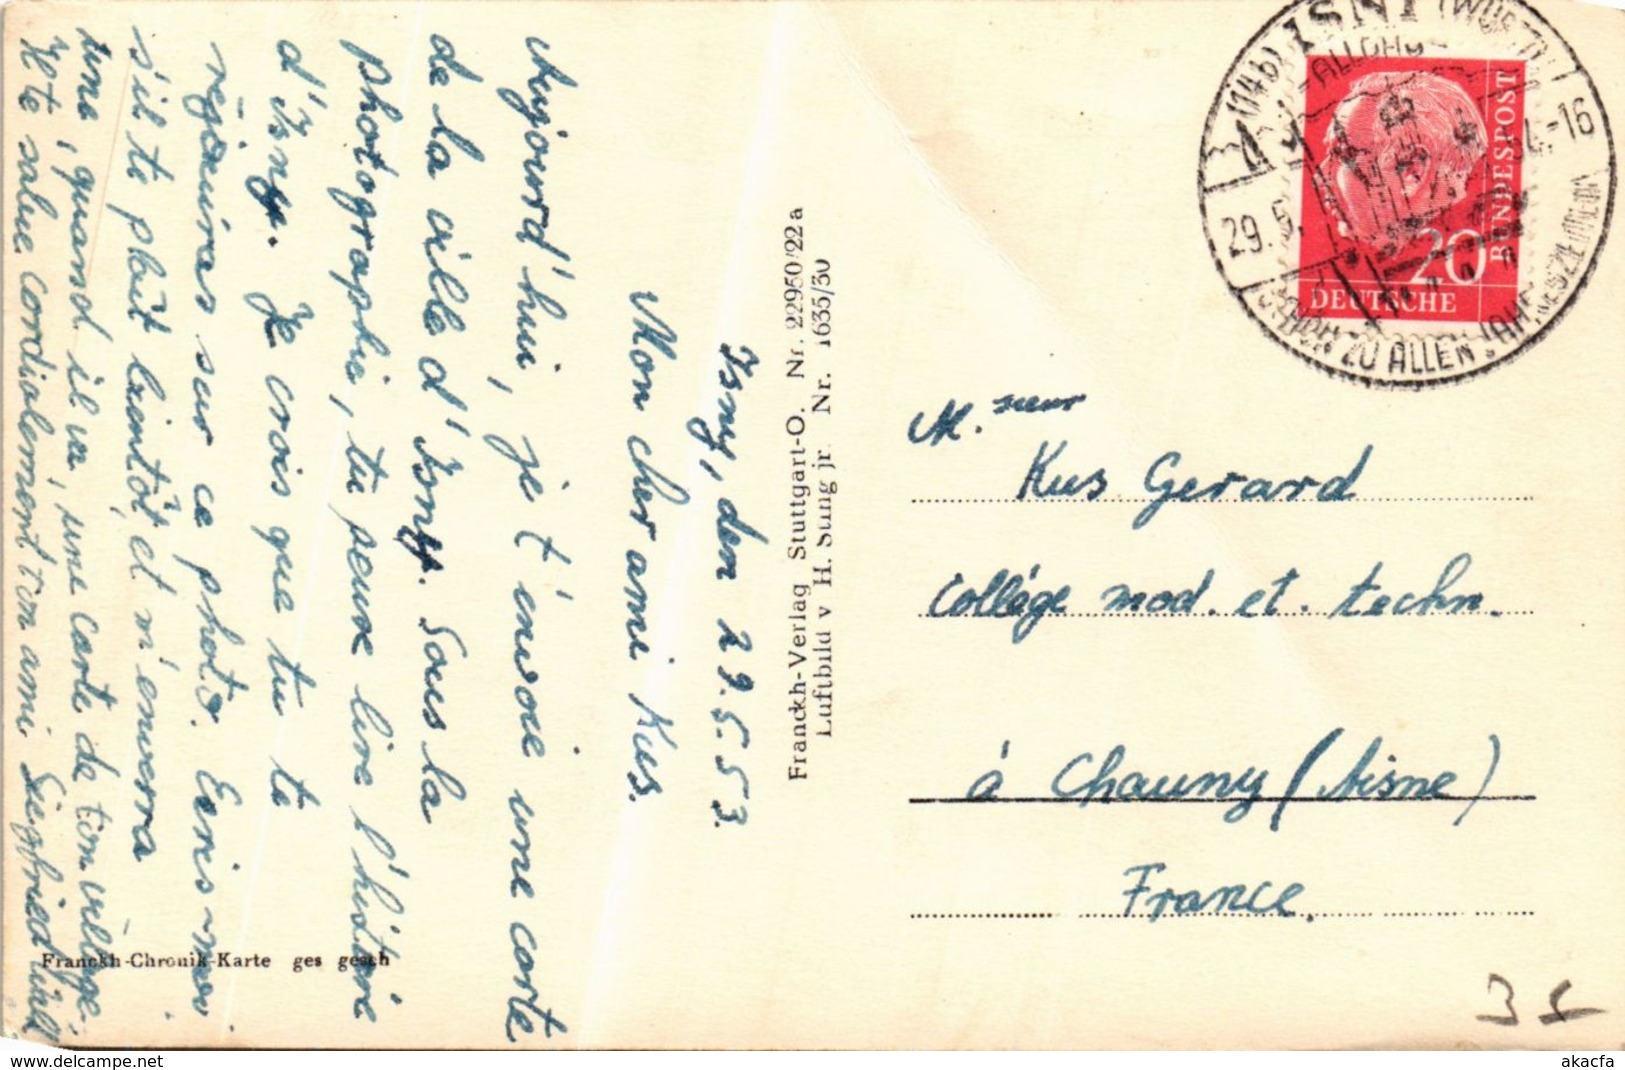 Isny, den 29.5.53.
Mon cher ami Kus.
Aujourd'hui, je t'envoie une carte
de la ville d'Isny. Sous la
photographie, tu peux lire l'histoire
d'Isny. Je crois que tu te
réjouiras sur ce photo. Ecris-moi
s'il te plaît bientôt et m'enverra
une, quand il va, une carte de ton village.
salue cordialement ton ami Siegfried
Franckh-Chronik-Karte ges gesch
Franckh-Verlag Stuttgart-O. Nr. 22950/22a
Luftbild v H. Strng jr Nr. 1635/30
(14b) ISNY (WÜRTT)
ALLGÄU
29.5. 54.-16
SCHÖN ZU ALLEN JAHRESZEITEN
DEUTSCHE
BUNDESPOST
20
M.sieur
Kus Gerard
Collége mod. et. techn.
à Chauny (Aisne)
France.
35
delcampe.net
akacfa